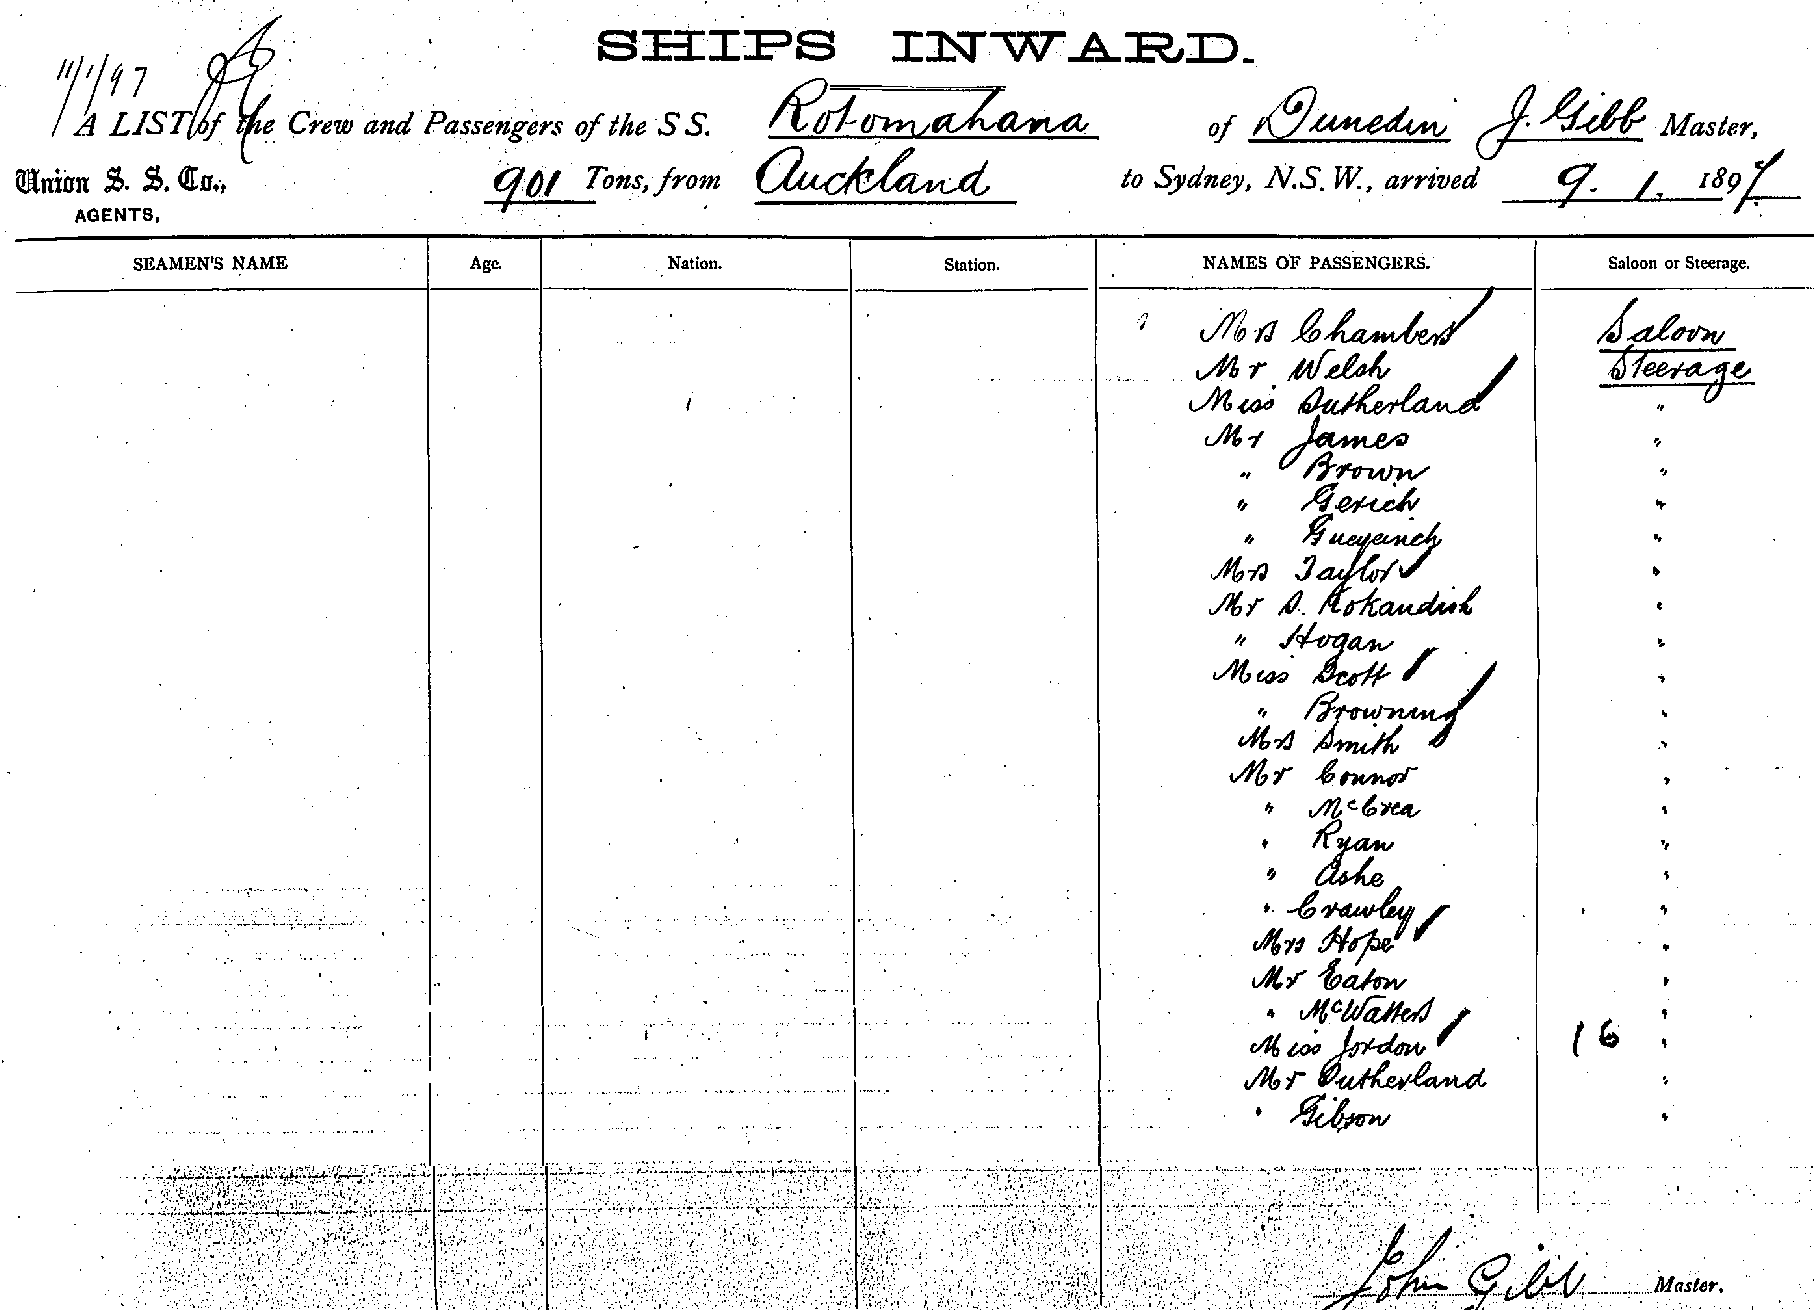 SHIPS INWARD.
11/1/97
A LIST of the Crew and Passengers of the S S. Rotomahana of Dunedin J. Gibb Master,
Union S. S. Co., 901 Tons, from Auckland to Sydney, N.S.W., arrived 9. 1. 1897.
AGENTS,
SEAMEN'S NAME Age. Nation. Station. NAMES OF PASSENGERS. Saloon or Steerage.
Mrs Chambers Saloon
Mr Welsh Steerage
Miss Sutherland "
Mr James "
" Brown "
" Gerich "
" "
Mrs Taylor "
Mr S. "
" Hogan "
Miss Scott "
" Browning "
Mrs Smith "
Mr Connor "
" McCrea "
" Ryan "
" Ashe "
" Crawley "
Mrs Hope "
Mr Eaton "
" McWatters "
Miss Jordon 16 "
Mr Sutherland "
" Gibson "
John Gibb Master.